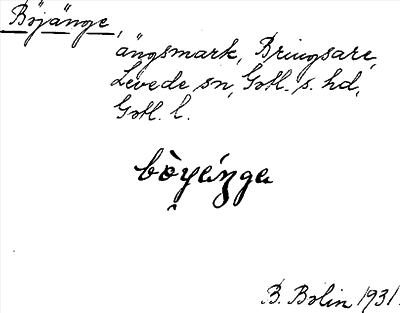 Böjänge,
ängsmark, Bringsare,
Levede sn, Gotl. s. hd,
Gotl. l.
bòyeŋge
B. Bolin 1931.